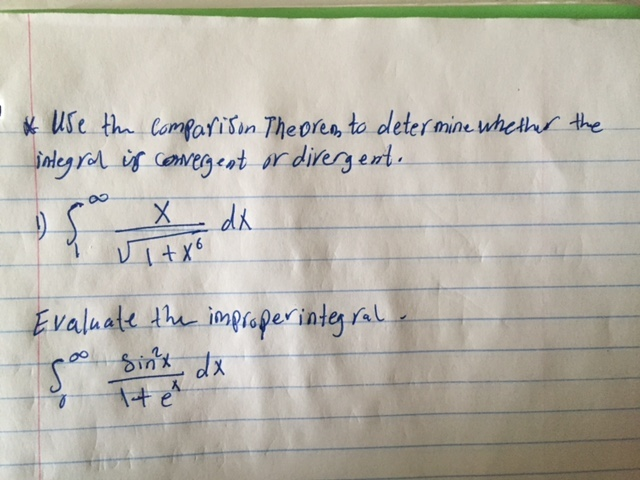 * Use the Comparison Theorem to determine whether the
integral is convergent or divergent.
1) ∫₁^∞ x/√(1+x⁶) dx
Evaluate the improper integral.
∫₀^∞ sin²x/(1+eˣ) dx